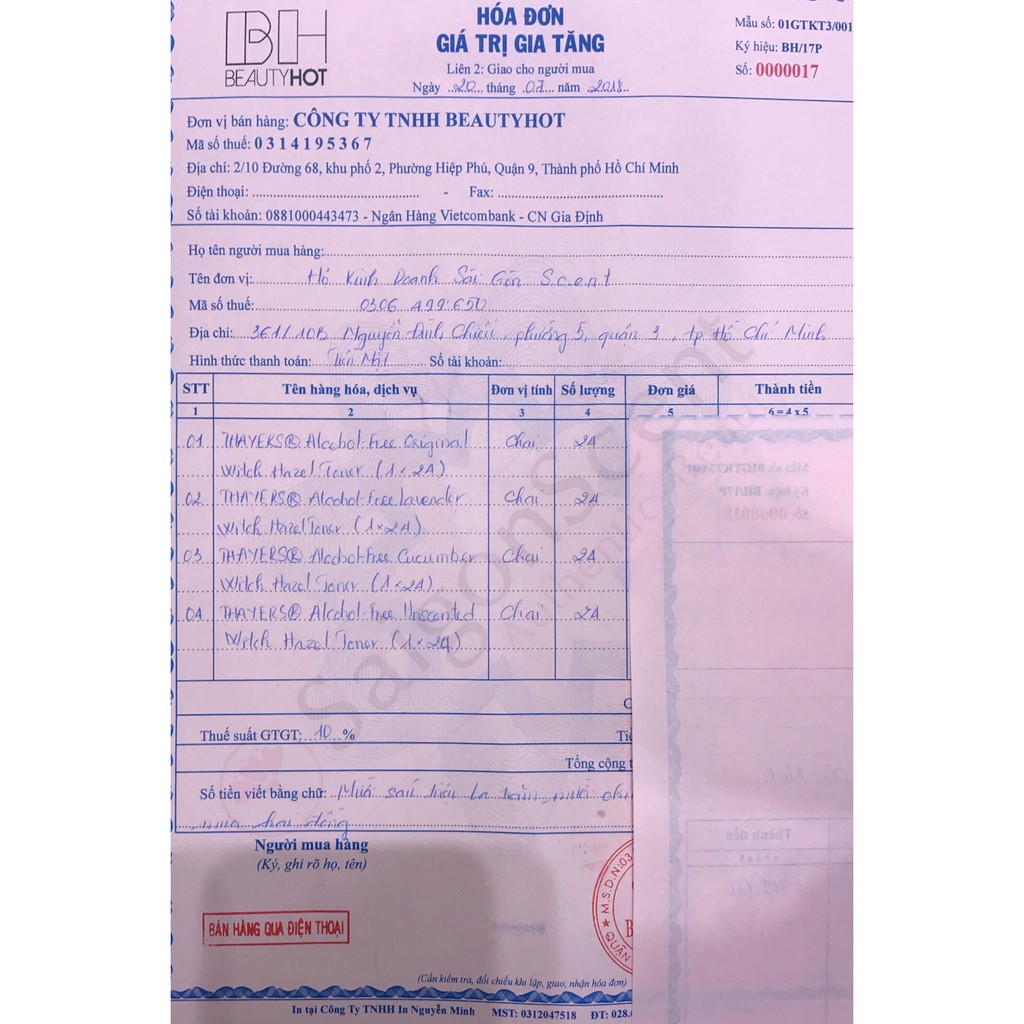 BH
BEAUTYHOT
HÓA ĐƠN
GIÁ TRỊ GIA TĂNG
Liên 2: Giao cho người mua
Ngày 20 tháng 07 năm 2018
Mẫu số: 01GTKT3/001
Ký hiệu: BH/17P
Số: 0000017
Đơn vị bán hàng: CÔNG TY TNHH BEAUTYHOT
Mã số thuế: 0314195367
Địa chỉ: 2/10 Đường 68, khu phố 2, Phường Hiệp Phú, Quận 9, Thành phố Hồ Chí Minh
Điện thoại: - Fax:
Số tài khoản: 0881000443473 - Ngân Hàng Vietcombank - CN Gia Định
Họ tên người mua hàng:
Tên đơn vị: Hộ Kinh Doanh Sài Gòn S.c.e.n.t
Mã số thuế: 0306 499 650
Địa chỉ: 361/10B Nguyễn Đình Chiểu, phường 5, quận 3, tp Hồ Chí Minh
Hình thức thanh toán: Tiền Mặt Số tài khoản:
STT Tên hàng hóa, dịch vụ Đơn vị tính Số lượng Đơn giá Thành tiền
1 2 3 4 5 6 = 4 x 5
01 THAYERS® Alcohol-Free Original Chai 24
Witch Hazel Toner (1 x 24)
02 THAYERS® Alcohol-Free Lavender Chai 24
Witch Hazel Toner (1 x 24)
03 THAYERS® Alcohol-Free Cucumber Chai 24
Witch Hazel Toner (1 x 24)
04 THAYERS® Alcohol-Free Unscented Chai 24
Witch Hazel Toner (1 x 24)
SaigonScent
Authentic
Thuế suất GTGT: 10 %
Tổng cộng
Số tiền viết bằng chữ: Mười sáu triệu
hai đồng
Người mua hàng
(Ký, ghi rõ họ, tên)
BÁN HÀNG QUA ĐIỆN THOẠI
M.S.D.N:03
QUẬN
(Cần kiểm tra, đối chiếu khi lập, giao, nhận hóa đơn)
In tại Công Ty TNHH In Nguyễn Minh MST: 0312047518 ĐT: 028.